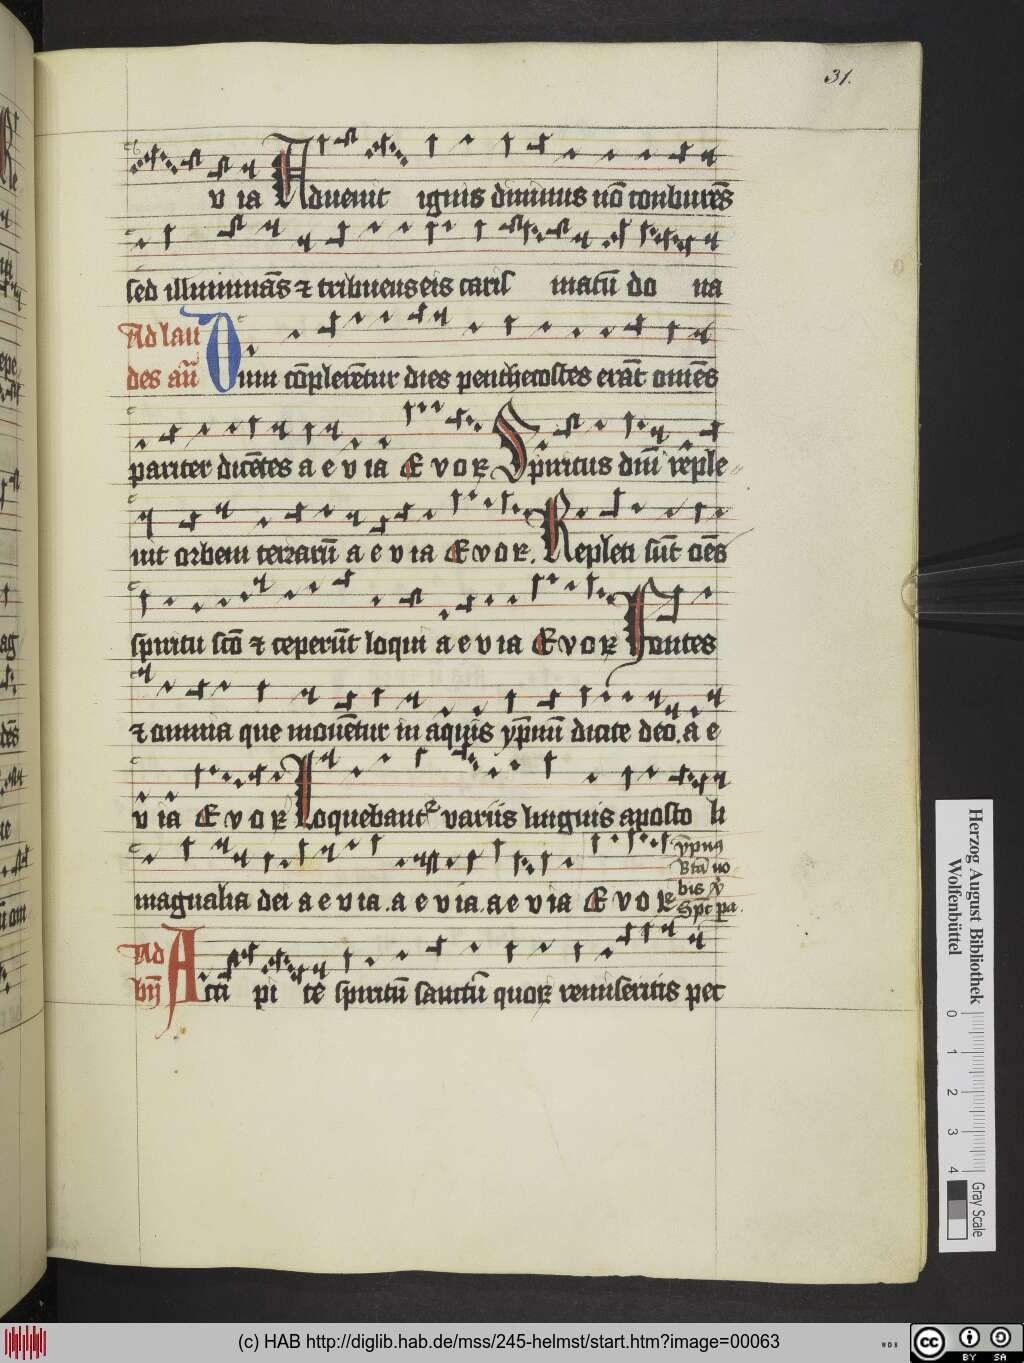 31.
v ia Aduenit ignis diuinus nō conburēs
sed illuminās ⁊ tribuens eis caris matū do na
Ad lau
des añ Dum cōplerētur dies penthecostes erāt om̄es
pariter dicētes a e v ia E v o ꝛ Spiritus dn̄i reple
uit orbem terrarū a e v ia E v o ꝛ. Repleti sūt oēs
spiritu scō ⁊ ceperūt loqui a e v ia E v o ꝛ Fontes
⁊ omnia que mouētur in aquis yp̄num dicite deo. a e
v ia E v o ꝛ Loquebantꝰ variis linguis aposto li
magnalia dei a e v ia. a e v ia. a e v ia E v o ꝛ
yp̄nꝰ
Btā no
bis
Sp̄c pa.
Ad
bn̄ Acci pi te spiritū sanctū quoꝝ remiseritis pec
Herzog August Bibliothek
Wolfenbüttel
0 1 2 3 4
Gray Scale
(c) HAB http://diglib.hab.de/mss/245-helmst/start.htm?image=00063
WDB
cc BY SA